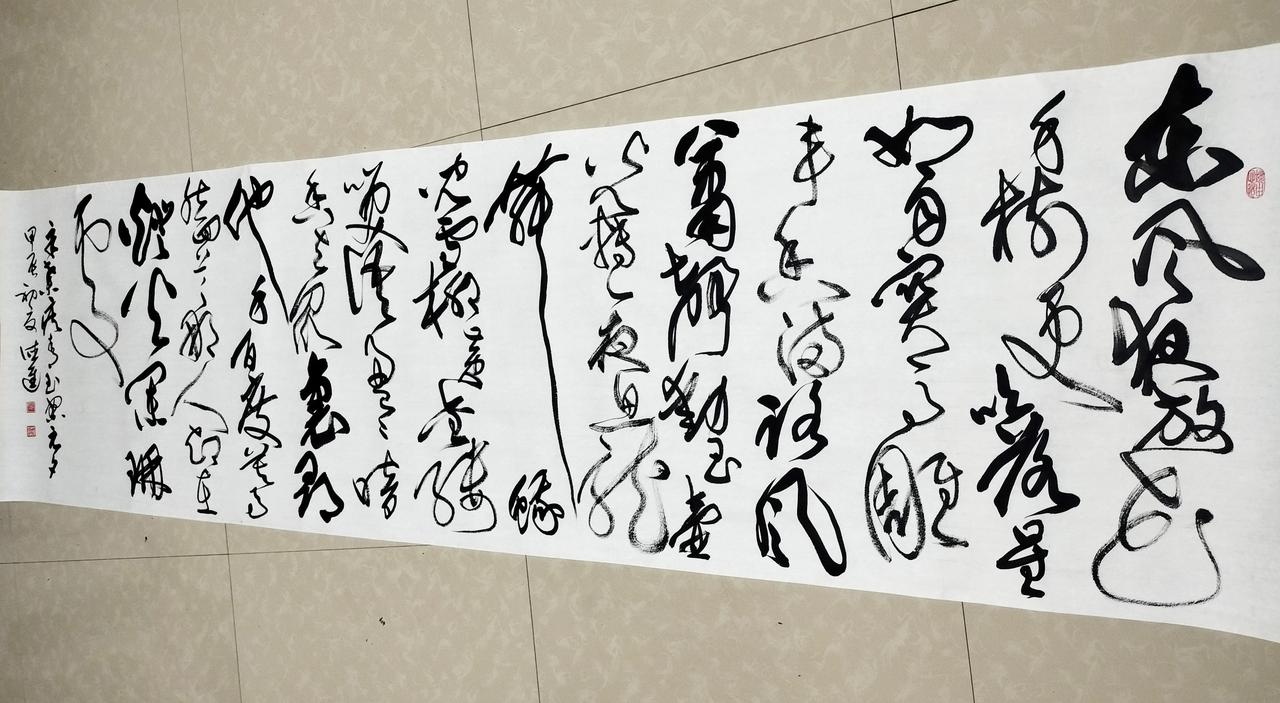 東風夜放花
千樹更吹落星
如雨寶馬雕
車香滿路鳳
簫聲動玉壺
光轉一夜魚龍
舞蛾
兒雪柳黃金縷
笑語盈盈暗
香去眾裏尋
他千百度驀
然回首那人卻在
燈火闌珊
處
辛棄疾青玉案元夕
甲辰初夏